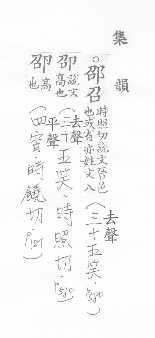 集韻
○邵召 時照切說文晉邑也或省亦姓文八 去聲(三十五笑·
卲 說文高也 去聲(三十五笑·時照切·
卲 高也 平聲(四宵·時饒切·